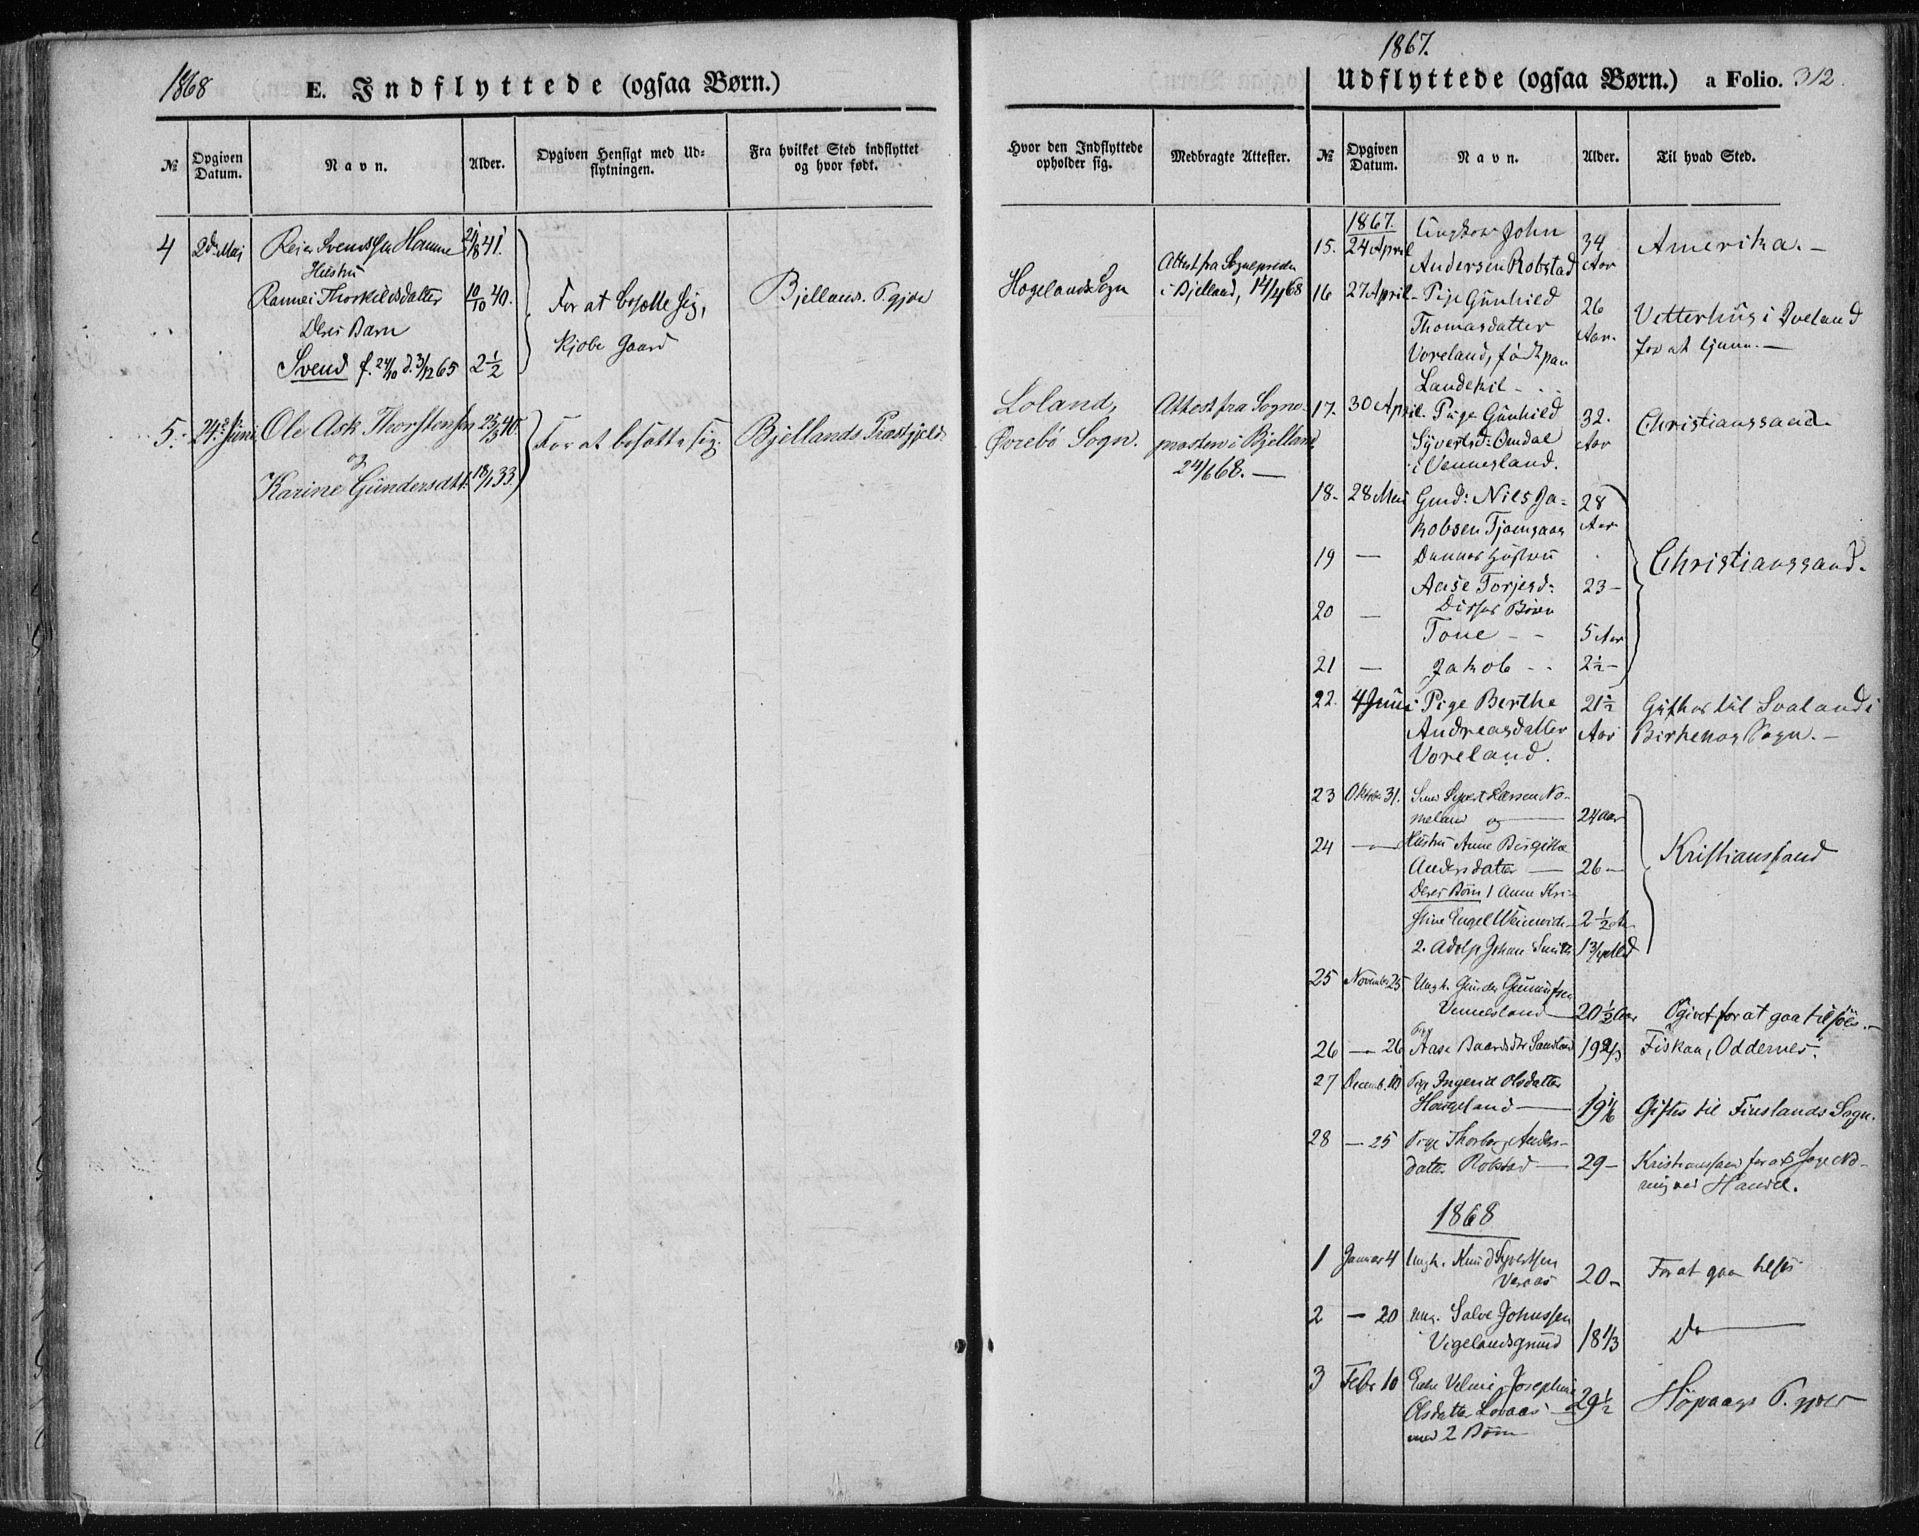 1868
E. Indflyttede (ogsaa Børn.)
№
Opgiven Datum.
Navn.
Alder.
Opgiven Hensigt med Udflytningen.
Fra hvilket Sted indflyttet og hvor født.
Hvor den Indflyttede opholder sig.
Medbragte Attester.
4
2den Maj
Reier Svendssen Homme
21/8 41.
Hustru
Rannei Thorkildsdatter
10/10 40.
Deres Barn
Svend f. 24/10 d. 3/12 65
2 1/2
For at bosætte sig,
kjøbe Gaard
Bjellands P.gjæld
Hægelands Sogn
Attest fra Sognepresten
i Bjelland, 14/4 68
5.
24de Juni
Ole Ask Thorstensen
25/3 40.
og
Karine Gundersdtr.
18/1 33.
For at bosætte sig.
Bjellands Præstgjeld
Loland,
Øvrebø Sogn.
Attest fra Sogne-
præsten i Bjelland
24/6 68. —
1867.
Udflyttede (ogsaa Børn.) a Folio. 312.
№
Opgiven Datum.
Navn.
Alder.
Til hvad Sted.
1867.
15.
24 April
Ungkar John
Andersen Robstad
34
Aar
Amerika. —
16
27 April
Pige Gunhild
Thomasdatter
Voreland, født paa
26
Aar.
Vetterhus i Iveland
for at tjene. —
17.
30 April
Pige Gunhild
Syvertsd: Omdal
i Vennesland.
32.
Aar
Christianssand.
18.
28 Mai
Gmd: Nils Ja-
kobsen
28
Aar
19
—
Dennes Hustru
Aase Torjesd:
23 —
20
—
Disses Børn
Tone — —
5 Aar
21
—
Jakob - -
2 1/2 —
Christianssand.
22.
4 Juni
Pige Berthe
Andreasdatter
Voreland.
21 1/2
Aar
Giftes til Svaland i
Birkenæs Sogn. —
23
Oktober 31.
Syvert Larsen No-
meland og —
24 aar
24
—
Hustru Anne Birgitte
Andersdatter —
26 —
Deres Børn 1 Anne Kri-
stine Engel
2 1/2
2. Adolf Johan
1 3/4
Kristianssand
25
November 25
Ungk. Gunder
Vennesland —
20 1/2 Aar
Opgivet for at gaa tilsøes. —
26
— 26
Pige
Aase Baardsdtr
19 2/3
Fiskaa, Oddernes.
27
Decemb.
Pige Ingerid Olsdatter
Hougeland —
19 1/6
Giftes til Finslands Sogn.
28
— 25
Pige Thorborg Anders-
datter Robstad —
29 —
Kristianssand for at søge Næ-
ring ved Handel.
1868
1
Januar 4
Ungk. Knud Syvertsen
20 —
For at gaa tilsøes
2
— 20
Ung. Salve Johnssen
Vigelandsgrund
18 1/3
Do —
3
Febr 10
Enke Velmi Josephine
Olsdatter Lovaas —
med 2 Børn
29 1/2
Høvaags P. gjæld